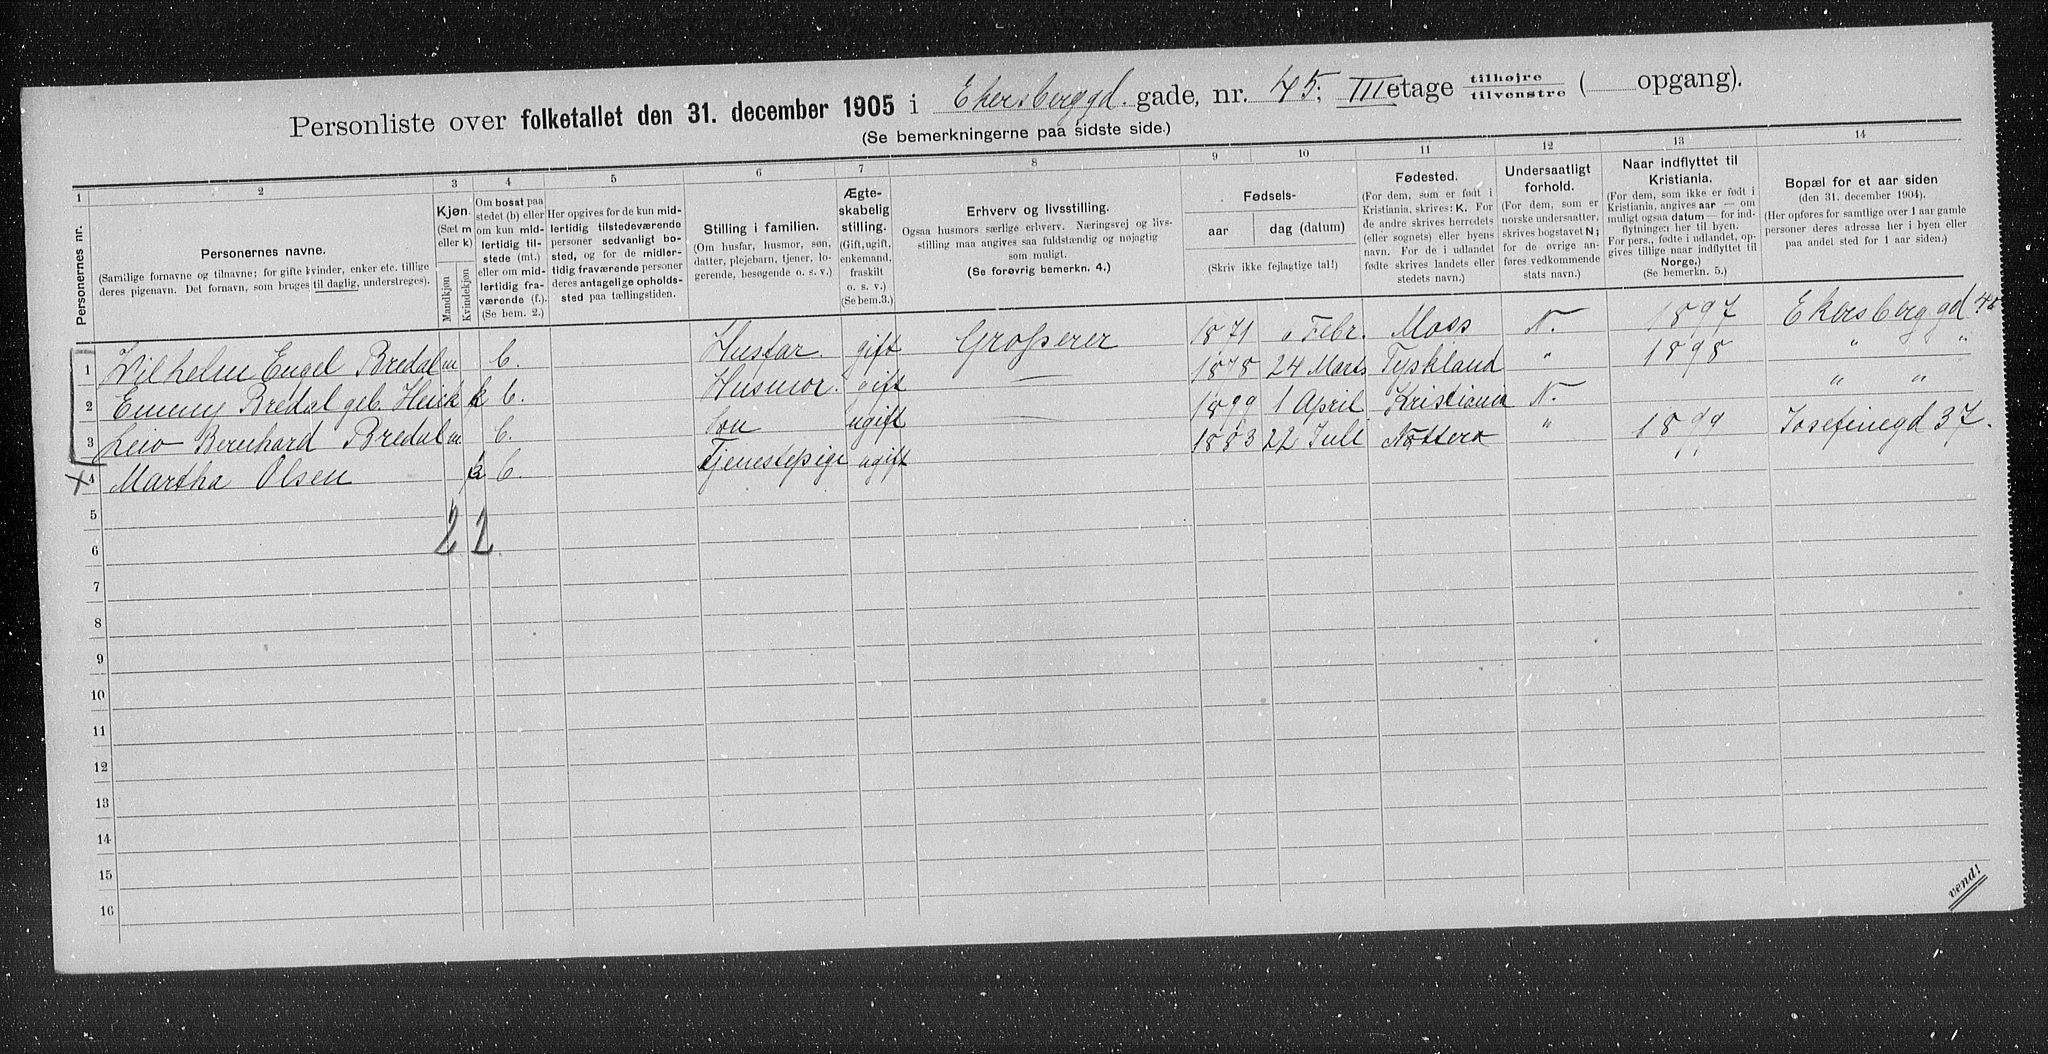 Personliste over folketallet den 31. december 1905 i Ekersberggd. gade, nr. 45; III etage tilhøjre tilvenstre ( opgang).
(Se bemerkningerne paa sidste side.)
1 2 3 4 5 6 7 8 9 10 11 12 13 14
Personernes nr.
Personernes navne.
(Samtlige fornavne og tilnavne; for gifte kvinder, enker etc. tillige deres pigenavn. Det fornavn, som bruges til daglig, understreges).
Kjøn.
(Sæt m eller k)
Mandkjøn
Kvindekjøn
Om bosat paa stedet (b) eller om kun midlertidig tilstede (mt.) eller om midlertidig fraværende (f.).
(Se bem. 2.)
Her opgives for de kun midlertidig tilstedeværende personer sedvanlig bosted, og for de midlertidig fraværende personer deres antagelige opholdssted paa tællingstiden.
Stilling i familien.
(Om husfar, husmor, søn, datter, plejebarn, tjener, logerende, besøgende o. s. v.)
Ægteskabelig stilling.
(Gift, ugift, enkemand, fraskilt o. s. v.)
(Se bem.3.)
Erhverv og livsstilling.
Ogsaa husmors særlige erhverv. Næringsvej og livsstilling maa angives saa fuldstændig og nøjagtig som muligt.
(Se forøvrig bemerkn. 4.)
Fødsels-
aar
dag (datum)
(Skriv ikke fejlagtige tal!)
Fødested.
(For dem, som er født i Kristiania, skrives: K. For de andre skrives herredets (eller sognets) eller byens navn. For de i udlandet fødte skrives landets eller stedets navn.)
Undersaatligt forhold.
(For dem, som er norske undersaatter, skrives bogstavet N; for de øvrige anføres vedkommende stats navn.)
Naar indflyttet til Kristiania.
(For dem, som ikke er født i Kristiania, angives aar — om muligt ogsaa datum — for indflytningen her til byen. For pers., fødte i udlandet, opgives tillige naar indflyttet til Norge.)
(Se bemerkn. 5.)
Bopæl for et aar siden
(den 31. december 1904).
(Her opføres for samtlige over 1 aar gamle personer deres adresse her i byen eller paa andet sted for 1 aar siden.)
1 Wilhelm Engel Bredal m b. Husfar. gift Grosserer 1871 Febr. Moss N. 1897 Ekersberggd 45
2 Emmy Bredal geb. Heick k b. Husmor. gift — 1878 24 Marts Tyskland " 1898 " "
3 Leio Bernhard Bredal m b. Søn ugift — 1899 1 April Kristiania N. " "
4 Martha Olsen k b. Tjenestepige ugift 1883 22 Juli Nøtterø " 1899 Josefinegd 37.
5
2 2
6
7
8
9
10
11
12
13
14
15
16
vend!